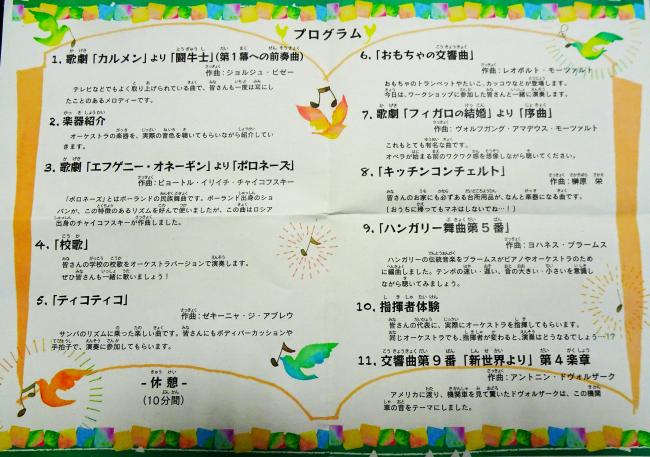 プログラム
1. 歌劇「カルメン」より「闘牛士」(第1幕への前奏曲)
作曲:ジョルジュ・ビゼー
テレビなどでもよく取り上げられている曲で、皆さんも一度は耳にし
たことのあるメロディーです。
2. 楽器紹介
オーケストラの楽器を、実際の音色を聴いてもらいながら紹介してい
きます。
3. 歌劇「エフゲニー・オネーギン」より「ポロネーズ」
作曲:ピョートル・イリイチ・チャイコフスキー
「ポロネーズ」とはポーランドの民族舞曲です。ポーランド出身のショ
パンが、この特徴のあるリズムを好んで使いましたが、この曲はロシア
出身のチャイコフスキーが作曲しました。
4. 「校歌」
皆さんの学校の校歌をオーケストラバージョンで演奏します。
ぜひ皆さんも一緒に歌いましょう!
5. 「ティコティコ」
作曲:ゼキーニャ・ジ・アブレウ
サンバのリズムに乗った楽しい曲です。皆さんにもボディパーカッションや
手拍子で、演奏に参加してもらいます。
- 休憩 -
(10分間)
6. 「おもちゃの交響曲」
作曲:レオポルト・モーツァルト
おもちゃのトランペットやたいこ、カッコウなどが登場します。
今日は、ワークショップに参加した皆さんと一緒に演奏します。
7. 歌劇「フィガロの結婚」より「序曲」
作曲:ヴォルフガング・アマデウス・モーツァルト
これもとても有名な曲です。
オペラが始まる前のワクワク感を想像しながら聴いてください。
8. 「キッチンコンチェルト」
作曲:榊原 栄
皆さんのお家にも必ずある台所用品が、なんと楽器になる曲です。
(おうちに帰ってもマネはしないでね…!)
9. 「ハンガリー舞曲第5番」
作曲:ヨハネス・ブラームス
ハンガリーの伝統音楽をブラームスがピアノやオーケストラのため
に編曲しました。テンポの速い・遅い、音の大きい・小さいを意識し
ながら聴いてみましょう。
10. 指揮者体験
皆さんの代表に、実際にオーケストラを指揮してもらいます。
同じオーケストラでも、指揮者が変わると、演奏はどうなるでしょう…!?
11. 交響曲第9番「新世界より」第4楽章
作曲:アントニン・ドヴォルザーク
アメリカに渡り、機関車を見て驚いたドヴォルザークは、この機関
車の音をテーマにしました。